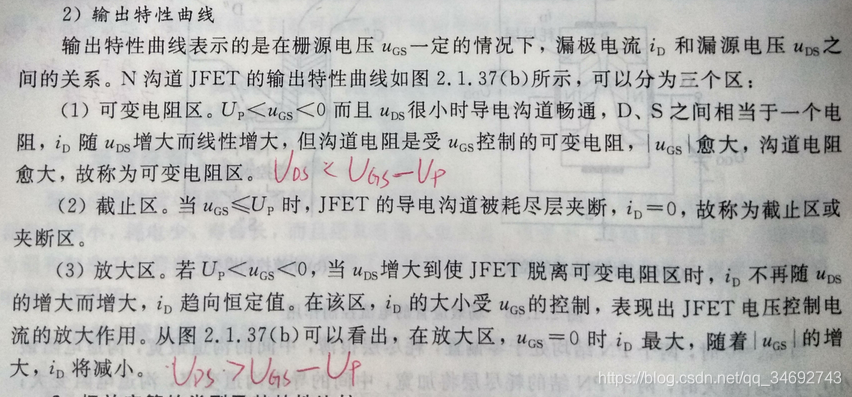 2）输出特性曲线
输出特性曲线表示的是在栅源电压 uGS 一定的情况下，漏极电流 iD 和漏源电压 uDS 之
间的关系。N 沟道 JFET 的输出特性曲线如图 2.1.37(b)所示，可以分为三个区：
（1）可变电阻区。UP＜uGS＜0 而且 uDS 很小时导电沟道畅通，D、S 之间相当于一个电
阻，iD 随 uDS 增大而线性增大，但沟道电阻是受 uGS 控制的可变电阻，|uGS|愈大，沟道电阻
愈大，故称为可变电阻区。 UDS < UGS-UP
（2）截止区。当 uGS≤UP 时，JFET 的导电沟道被耗尽层夹断，iD＝0，故称为截止区或
夹断区。
（3）放大区。若 UP＜uGS＜0，当 uDS 增大到使 JFET 脱离可变电阻区时，iD 不再随 uDS
的增大而增大，iD 趋向恒定值。在该区，iD 的大小受 uGS 的控制，表现出 JFET 电压控制电
流的放大作用。从图 2.1.37(b)可以看出，在放大区，uGS＝0 时 iD 最大，随着|uGS|的增
大，iD 将减小。 UDS > UGS-UP
https://blog.csdn.net/qq_34692743